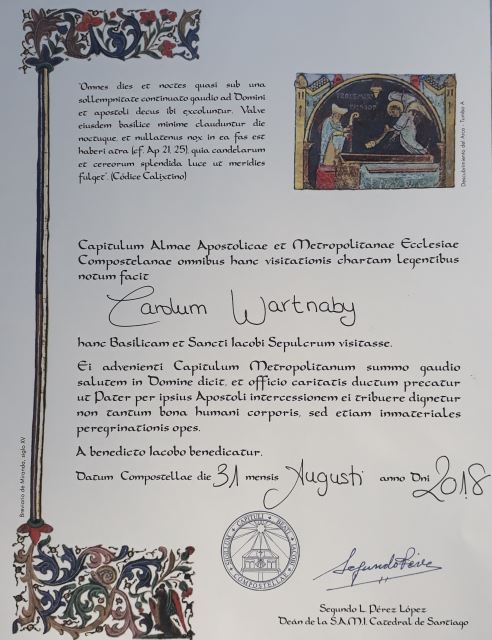 "Omnes dies et noctes quasi sub una
sollempnitate continuato gaudio ad Domini
et apostoli decus ibi excoluntur. Valve
eiusdem basilice minime clauduntur die
noctuque et nullatenus nox in ea fas est
haberi atra (cf. Ap 21, 25), quia candelarum
et cereorum splendida luce ut meridies
fulget". (Códice Calixtino)
Descubrimiento del Arca - Tumbo A
Capitulum Almae Apostolicae et Metropolitanae Ecclesiae
Compostelanae omnibus hanc visitationis chartam legentibus
notum facit
Carolum Wartnaby
hanc Basilicam et Sancti Iacobi Sepulcrum visitasse.
Ei advenienti Capitulum Metropolitanum summo gaudio
salutem in Domine dicit, et officio caritatis ductum precatur
ut Pater per ipsius Apostoli intercessionem ei tribuere dignetur
non tantum bona humani corporis, sed etiam inmateriales
peregrinationis opes.
A benedicto Iacobo benedicatur.
Datum Compostellae die 31 mensis Augusti anno Dni 2018
Breviario de Miranda, siglo XV
SIGILLUM CAPITULI BEATI IACOBI COMPOSTELLAE
Segundo Pérez
Segundo L. Pérez López
Deán de la S.A.M.I. Catedral de Santiago